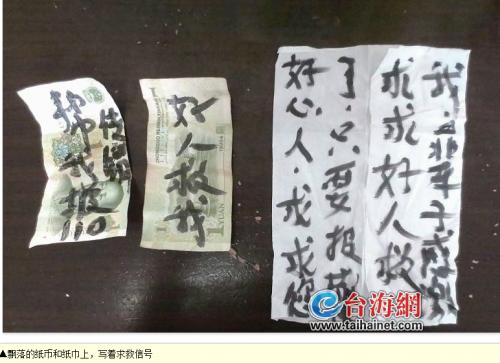 帮我报110
传销
好人救我
1 YUAN
好心人.求求您
了.只要报
求求好人救
我.一辈子感激
台海網
www.taihainet.com
▲飘落的纸币和纸巾上，写着求救信号